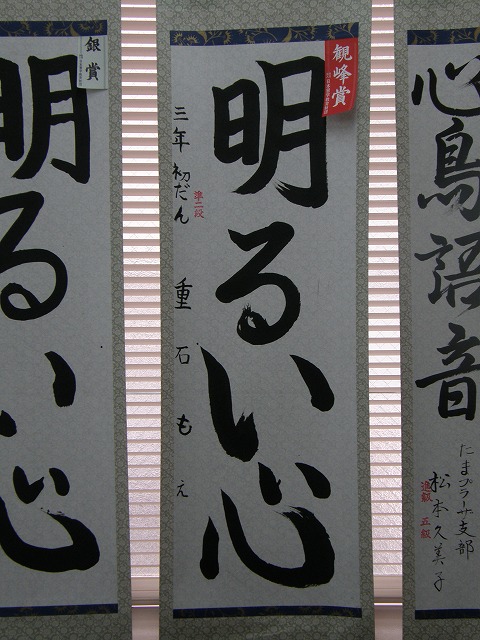 心鳥語音
たまプラーザ支部
松本久美子
進級 五級
観峰賞
明るい心
三年 初だん 重石もえ
準二段
銀賞
明るい心